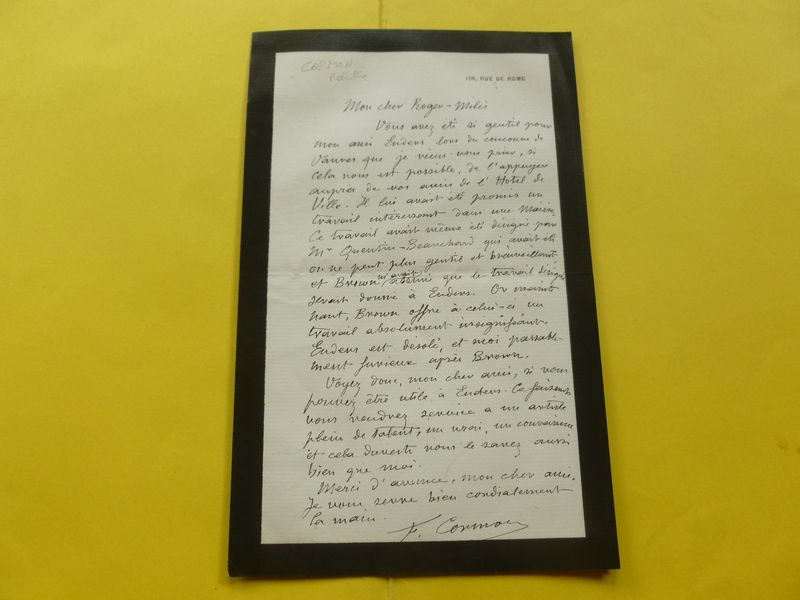 CORMON
Peintre
159, RUE DE ROME
Mon cher Roger-Milès
Vous avez été si gentil pour
mon ami Enders lors du concours de
Vanves que je viens vous prier, si
cela vous est possible, de l'appuyer
auprès de vos amis de l'Hôtel de
Ville. Il lui avait été promis un
travail intéressant dans une Mairie,
Ce travail avait même été désigné par
Mr Quentin-Beauchard qui avait été
on ne peut plus gentil et bienveillant
et Brown m'avait assuré que le travail désigné
serait donné à Enders. Or mainte
nant, Brown offre à celui-ci un
travail absolument insignifiant.
Enders est désolé, et moi passable-
ment furieux après Brown.
Voyez donc, mon cher ami, si vous
pouvez être utile à Enders. Ce faisant
vous rendrez service à un artiste
plein de talent, un vrai, un convaincu
et cela vous le savez aussi
bien que moi.
Merci d'avance, mon cher ami.
Je vous serre bien cordialement
la main.
F. Cormon